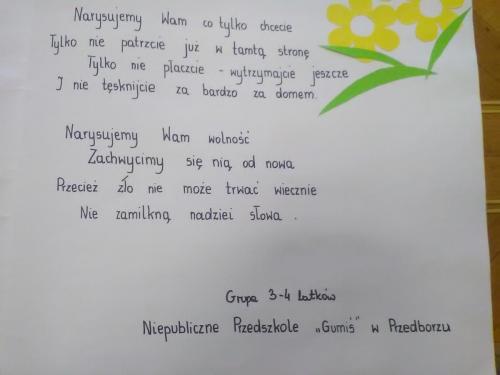 Narysujemy Wam co tylko chcecie
Tylko nie patrzcie już w tamtą stronę
Tylko nie płaczcie - wytrzymajcie jeszcze
I nie tęsknijcie za bardzo za domem.
Narysujemy Wam wolność
Zachwycimy się nią od nowa
Przecież zło nie może trwać wiecznie
Nie zamilkną nadziei słowa.
Grupa 3-4 latków
Niepubliczne Przedszkole „Gumiś" w Przedborzu